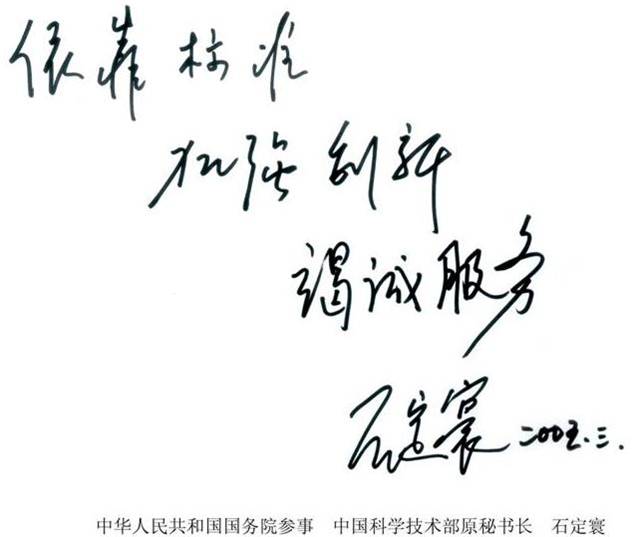 依靠标准
加强创新
竭诚服务
石定寰 二〇〇五.三.
中华人民共和国国务院参事 中国科学技术部原秘书长 石定寰